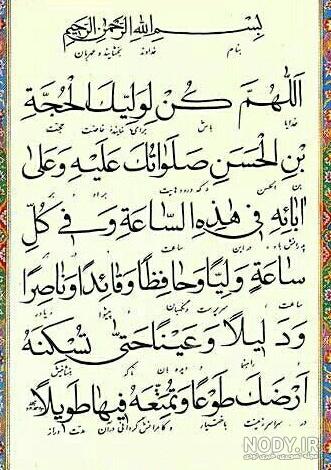 بِسْمِ اللهِ الرَّحْمٰنِ الرَّحِيمِ
بنام خداوند بخشاینده و مهربان
اَللّٰهُمَّ كُنْ لِوَلِيِّكَ الْحُجَّةِ
خدایا باش برای نماینده حجت
بْنِ الْحَسَنِ صَلَوَاتُكَ عَلَيْهِ وَعَلىٰ
بن الحسن که درودهایت بر او بر
اٰبَائِهِ فِى هٰذِهِ السَّاعَةِ وَفِي كُلِّ
پدرانش باد در این ساعت و در هر
سَاعَةٍ وَلِيًّا وَحَافِظًا وَقَائِدًا وَنَاصِرًا
ساعت سرپرست و نگهبان پیشوا و یاور
وَدَلِيلًا وَعَيْنًا حَتّىٰ تُسْكِنَهُ
راهنما و دیده بان تا که
اَرْضَكَ طَوْعًا وَتُمَتِّعَهُ فِيهَا طَوِيلًا
در سراسر زمینت با اختیار و کامرانش گردانی در آن مدت دراز
NODY.IR